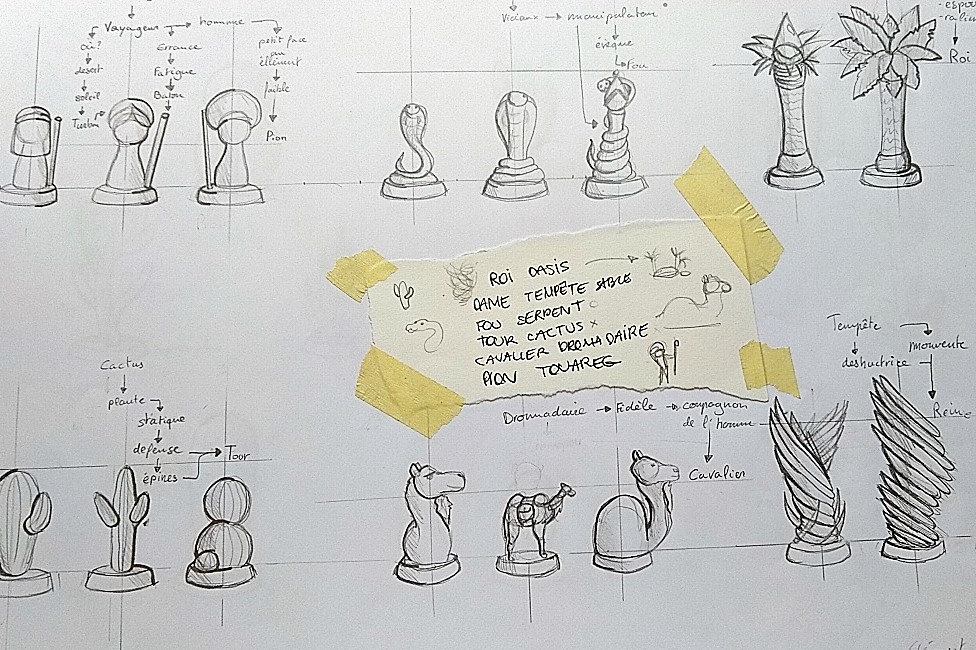 Voyageur homme
où?
désert
soleil
Turban
Errance
Fatigue
Baton
petit face
élément
faible
Pion
Vicieux manipulateur
évêque
Fou
Roi
ROI OASIS
DAME TEMPÊTE SABLE
FOU SERPENT
TOUR CACTUS
CAVALIER DROMADAIRE
PION TOUAREG
Cactus
plante
statique
defense
épines
Tour
Dromadaire Fidèle compagnon
de l'homme
Cavalier
Tempête
mouvante
destructrice
Reine